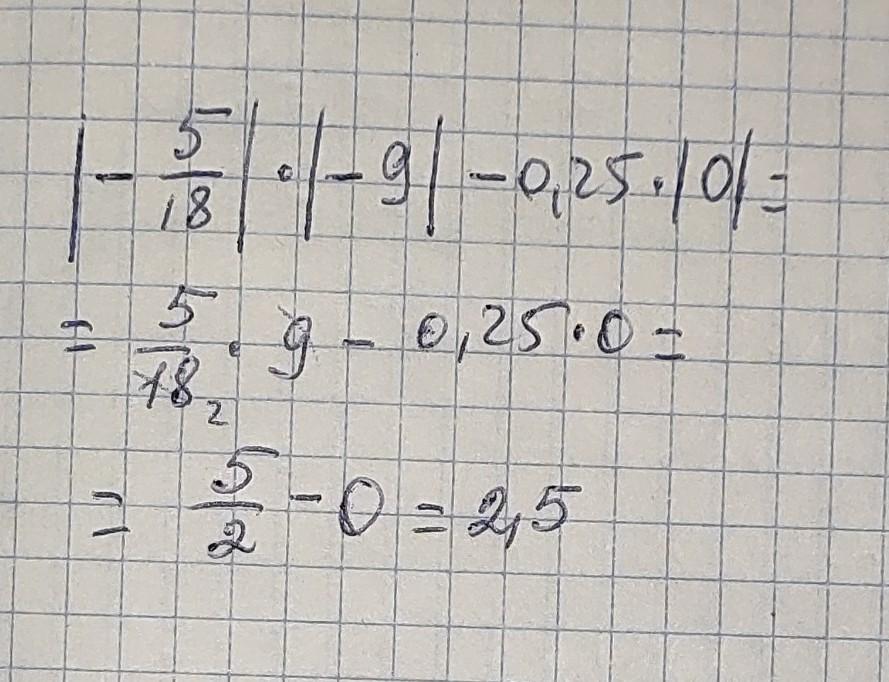 |-5/18|·|-9|-0,25·|0|=
=5/18₂·9-0,25·0=
=5/2-0=2,5